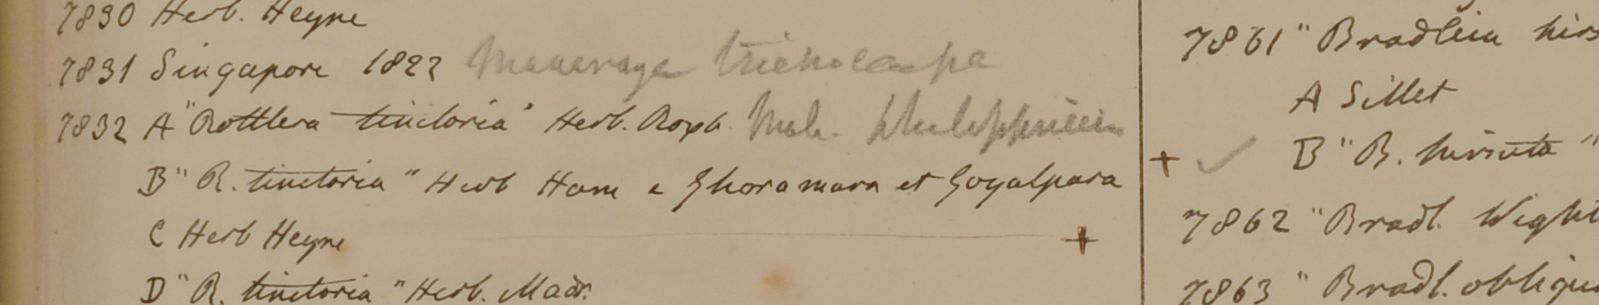 7830 Herb. Heyne
7831 Singapore 1822 Macaranga trichocarpa
7832 A "Rottlera tinctoria" Herb. Roxb. Mal. philippinensis
B "R. tinctoria" Herb Ham e Ghoramara et Goyalpara
C Herb Heyne +
D "R. tinctoria" Herb. Madr.
7861 " Bradleia hirs
A Sillet
+ ✓ B "B. hirsuta "
7862 "Bradl. Wight
7863 " Bradl. obliqu